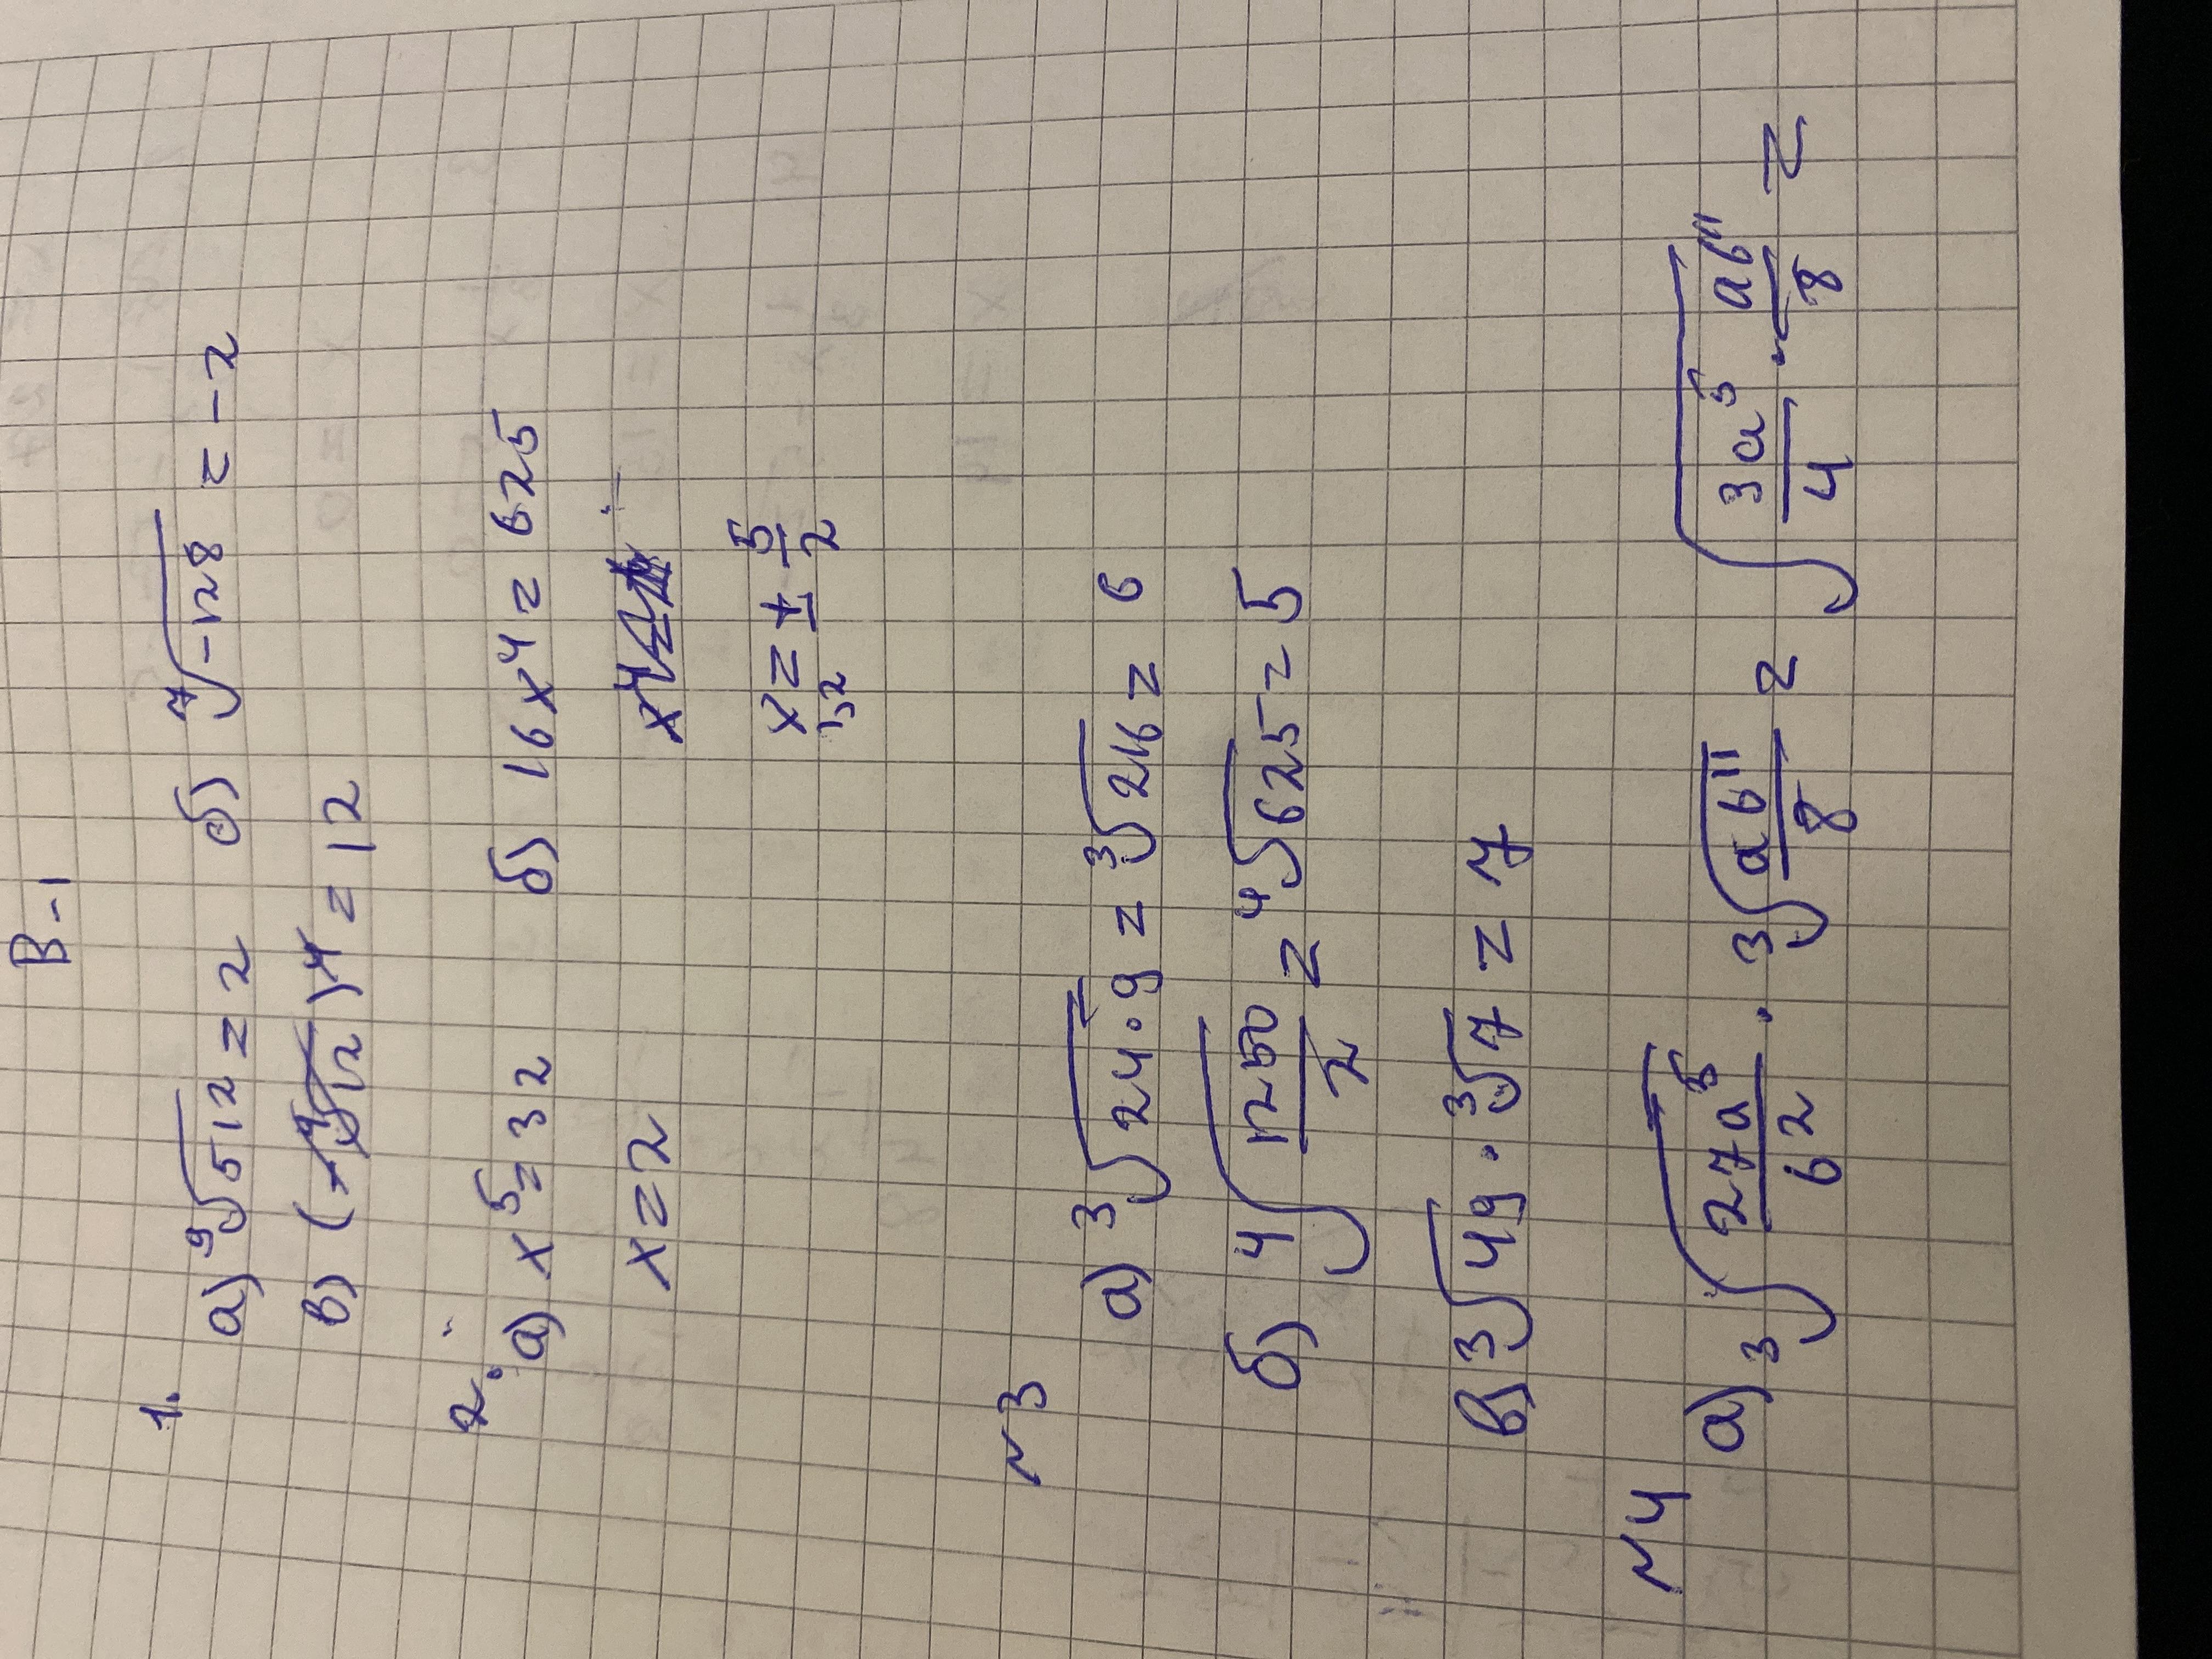 В-1
1.
а) ⁹√512 = 2 б) ⁷√-128 = -2
в) (-⁴√12)⁴ = 12
2.
а) x⁵ = 32 б) 16x⁴ = 625
x = 2
x = ± 5/2
1,2
№3
а) ³√24·9 = ³√216 = 6
б) ⁴√(1250/2) = ⁴√625 = 5
в) ³√49 · ³√7 = 7
№4
а) ³√(27a⁵/b2) · ³√(ab¹¹/8) = √(3a⁵/4 · ab¹¹/8) =